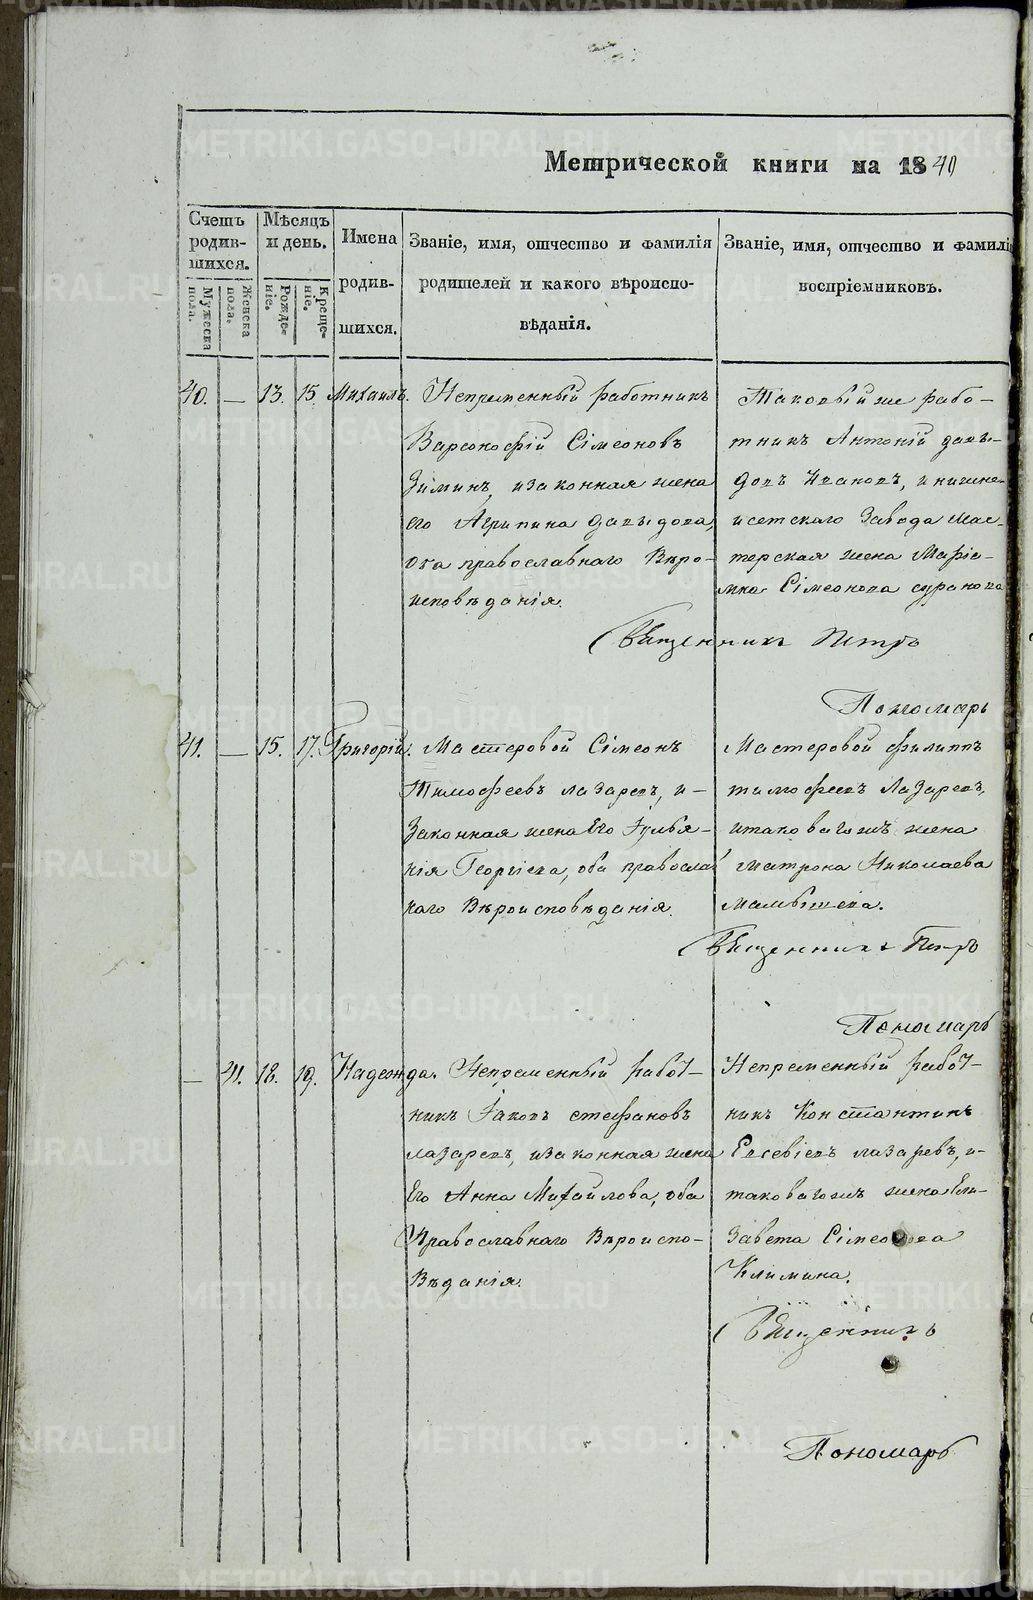 Метрической книги на 1840
Счетъ родив-шихся.
Мужеска пола.
Женска пола.
Мѣсяцъ и день.
Рожде-ніе.
Креще-ніе.
Имена родив-шихся.
Званіе, имя, отчество и фамилія
родителей и какого вѣроиспо-
вѣданія.
Званіе, имя, отчество и фамилія
воспріемниковъ.
40. — 13. 15. Михаилъ.
Непременный работникъ
Варсонофій Сімеоновъ
Зиминъ, и законная жена
его Агрипина Давыдова,
оба православнаго Вѣро-
исповѣданія.
Таковый же рабо-
тникъ Антоній давы-
довъ Ивановъ, и нижне-
исетскаго Завода мас-
терская жена Марія-
мна Сімеонова суранова
Священникъ Петръ
Пономарь
41. — 15. 17. Григорій.
Мастеровой Сімеонъ
Тимофеевъ лазаревъ, и-
Законная жена Его Іулья-
нія Георгіева, оба православ
наго Вѣроисповѣданія.
Мастеровой филиппъ
тимофеевъ Лазаревъ,
итаковагожъ жена
матрона Николаева
Мамышева.
Священникъ Петръ
Пономарь
— 41. 18. 19. Надежда.
Непременный работ-
никъ Іаковъ стефановъ
лазаревъ, изаконная жена
Его Анна Михайлова, оба
Православнаго Вѣроиспо-
Вѣданія.
Непременный работ-
никъ Константинъ
Евсевіевъ лазаревъ, и-
таковагожъ жена Ели-
завета Сімеонова
Климина.
Священникъ
Пономарь
METRIKI.GASO-URAL.RU